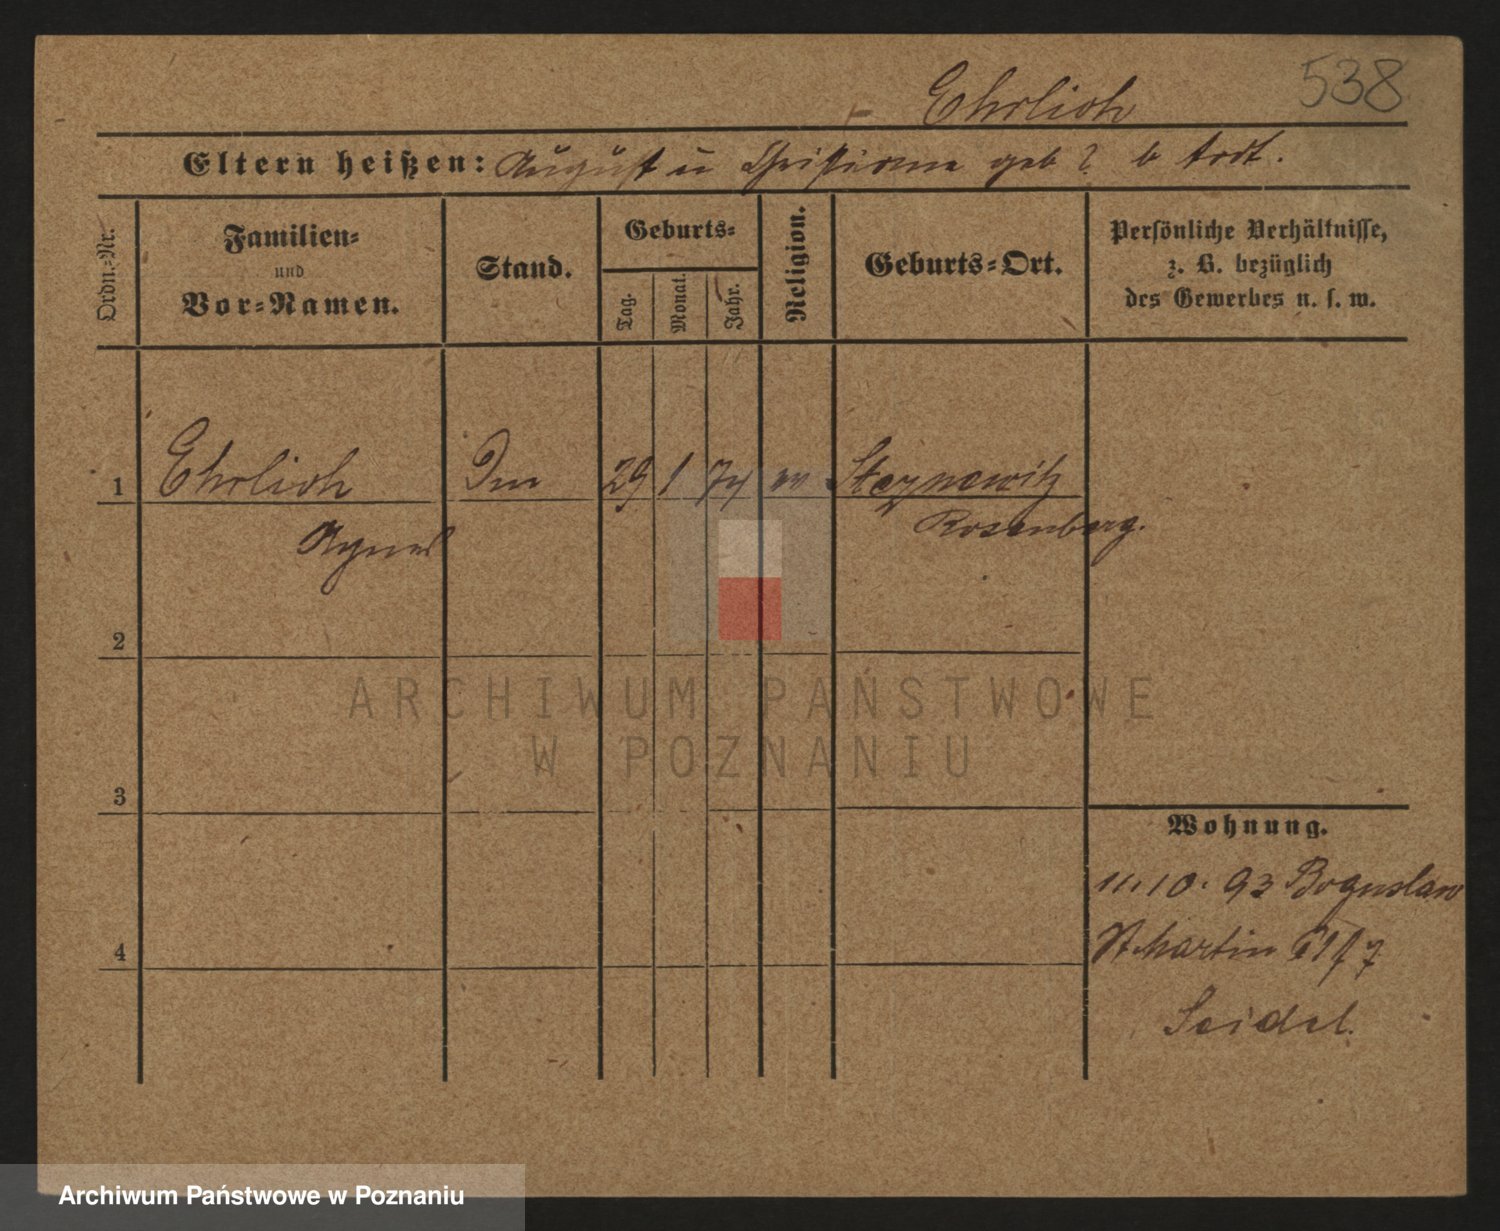 538
Ehrlich
Eltern heißen: August u Christiane geb ? b todt.
Ordn.-Nr.
Familien-
und
Vor-Namen.
Stand.
Geburts-
Tag.
Monat.
Jahr.
Religion.
Geburts-Ort.
Persönliche Verhältnisse,
z. B. bezüglich
des Gewerbes u. s. w.
1 Ehrlich 29 1 74
Agnes Rosenberg.
2
3
4
Wohnung.
11.10. 93 Boguslaw
St. Martin
Seidel.
ARCHIWUM PAŃSTWOWE
W POZNANIU
Archiwum Państwowe w Poznaniu